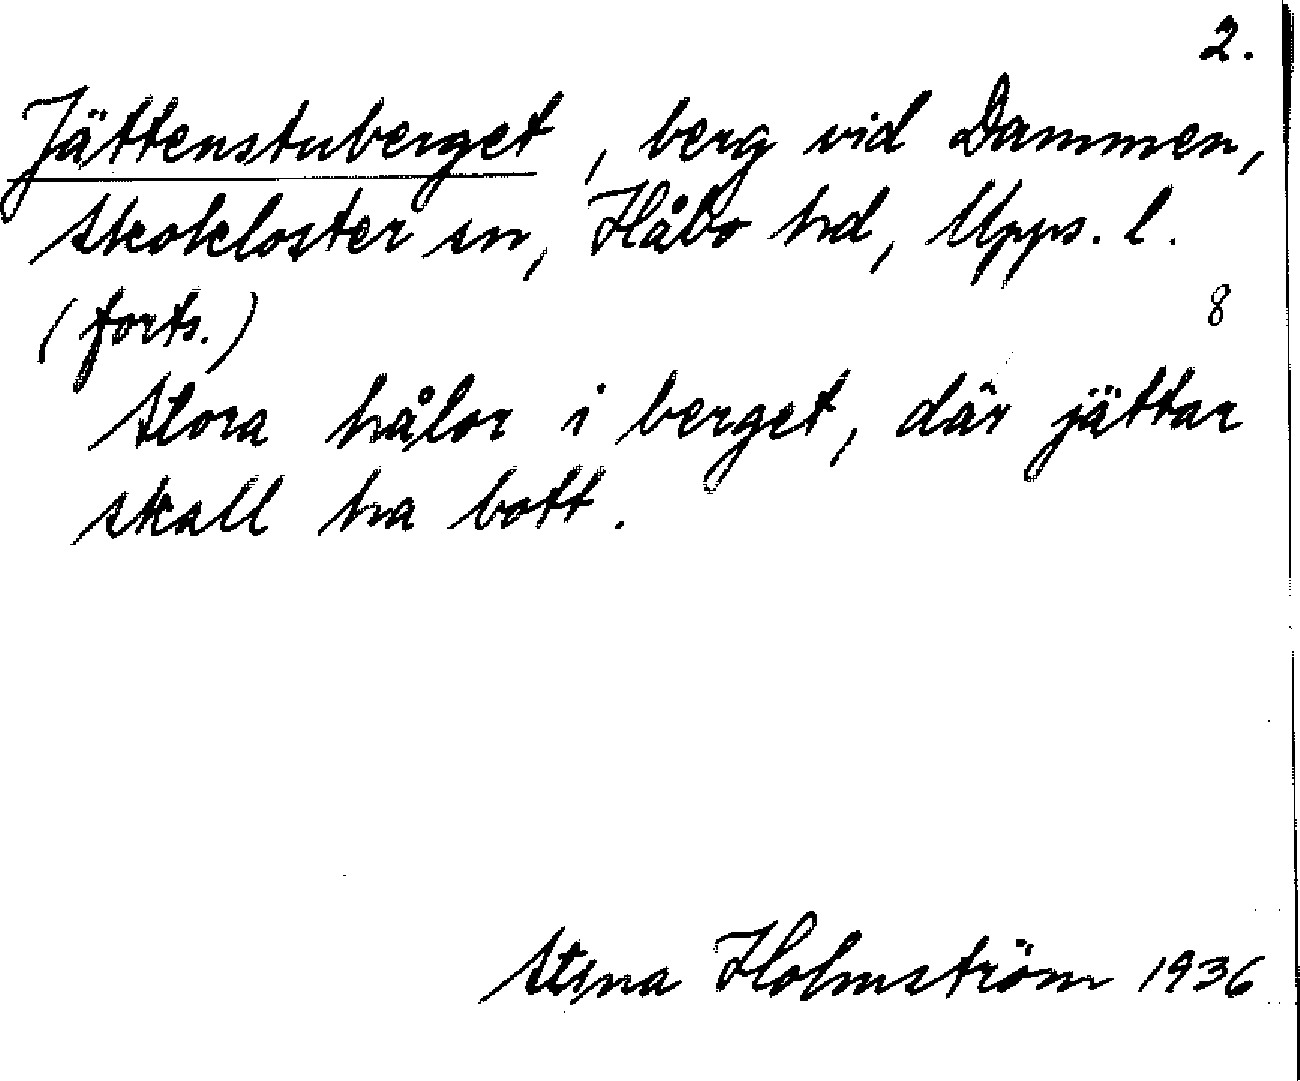 2.
Jättenstuberget, berg vid Dammen,
Skokloster sn, Håbo hd, Upps. l.
(forts.) 8
Stora hålor i berget, där jättar
skall ha bott.
Stina Holmström 1936